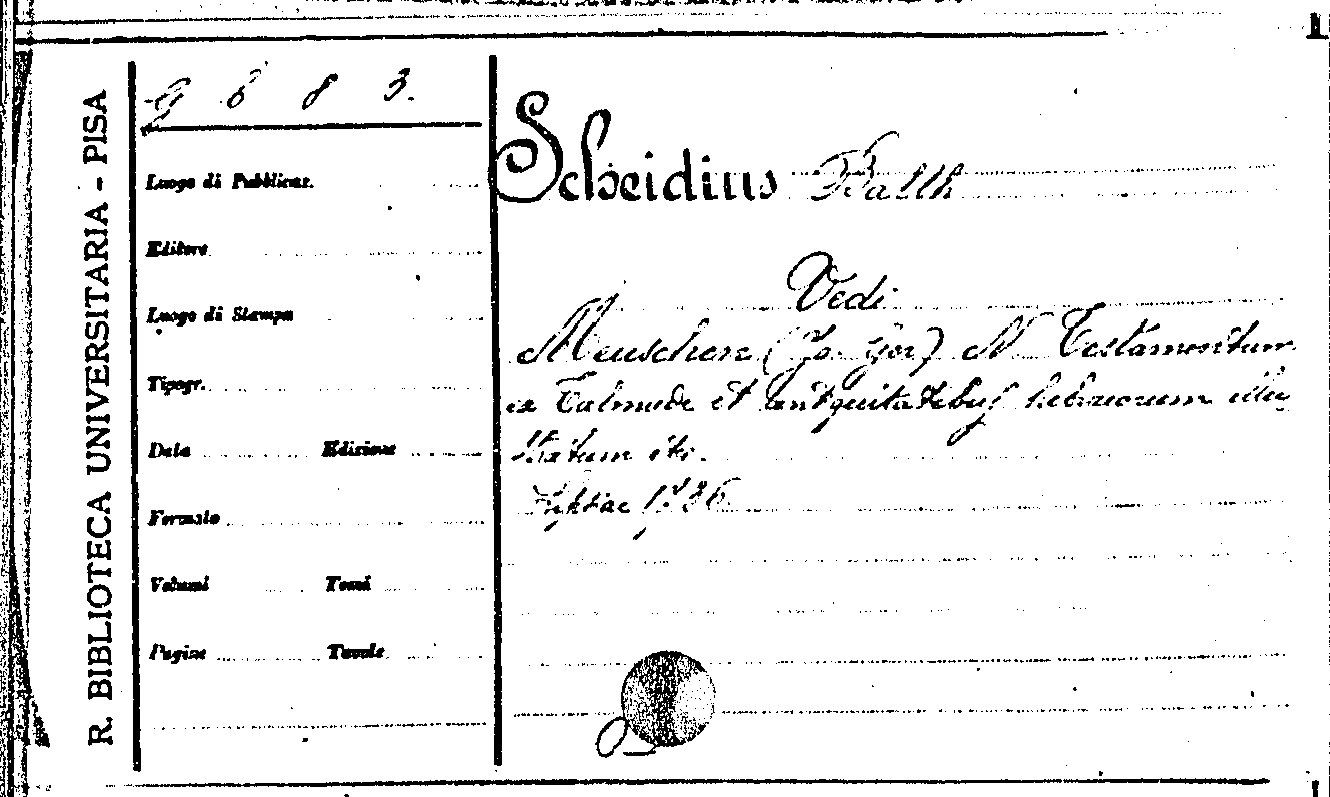 R. BIBLIOTECA UNIVERSITARIA - PISA
G 8 8 3.
Luogo di Pubblicaz.
Editore
Luogo di Stampa
Tipogr.
Data Edizione
Formato
Volumi Tomi
Pagine Tavole
Scheidius Balth
Vedi
Meuschen (Jo. Ger) N Testamentum
ex Talmude et antiquitatibus hebraeorum illu
stratum etc.
Lipsiae 1736